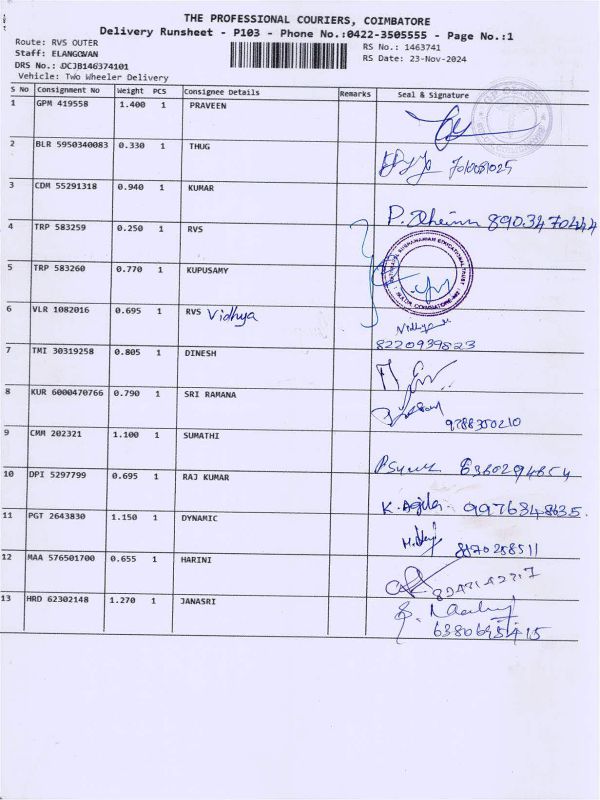 THE PROFESSIONAL COURIERS, COIMBATORE
Delivery Runsheet - P103 - Phone No.:0422-3505555 - Page No.:1
Route: RVS OUTER
RS No.: 1463741
Staff: ELANGOWAN
RS Date: 23-Nov-2024
DRS No.: DCJB146374101
Vehicle: Two Wheeler Delivery
S No Consignment No Weight PCS Consignee Details Remarks Seal & Signature
1 GPM 419558 1.400 1 PRAVEEN
2 BLR 5950340083 0.330 1 THUG
3 CDM 55291318 0.940 1 KUMAR
8903470444
4 TRP 583259 0.250 1 RVS
5 TRP 583260 0.770 1 KUPUSAMY
6 VLR 1082016 0.695 1 RVS Vidhya
Vidhya
8220939823
7 TMI 30319258 0.805 1 DINESH
8 KUR 6000470766 0.790 1 SRI RAMANA
9788350210
9 CMM 202321 1.100 1 SUMATHI
10 DPI 5297799 0.695 1 RAJ KUMAR
9976348635
11 PGT 2643830 1.150 1 DYNAMIC
8170258511
12 MAA 576501700 0.655 1 HARINI
13 HRD 62302148 1.270 1 JANASRI
6380695415